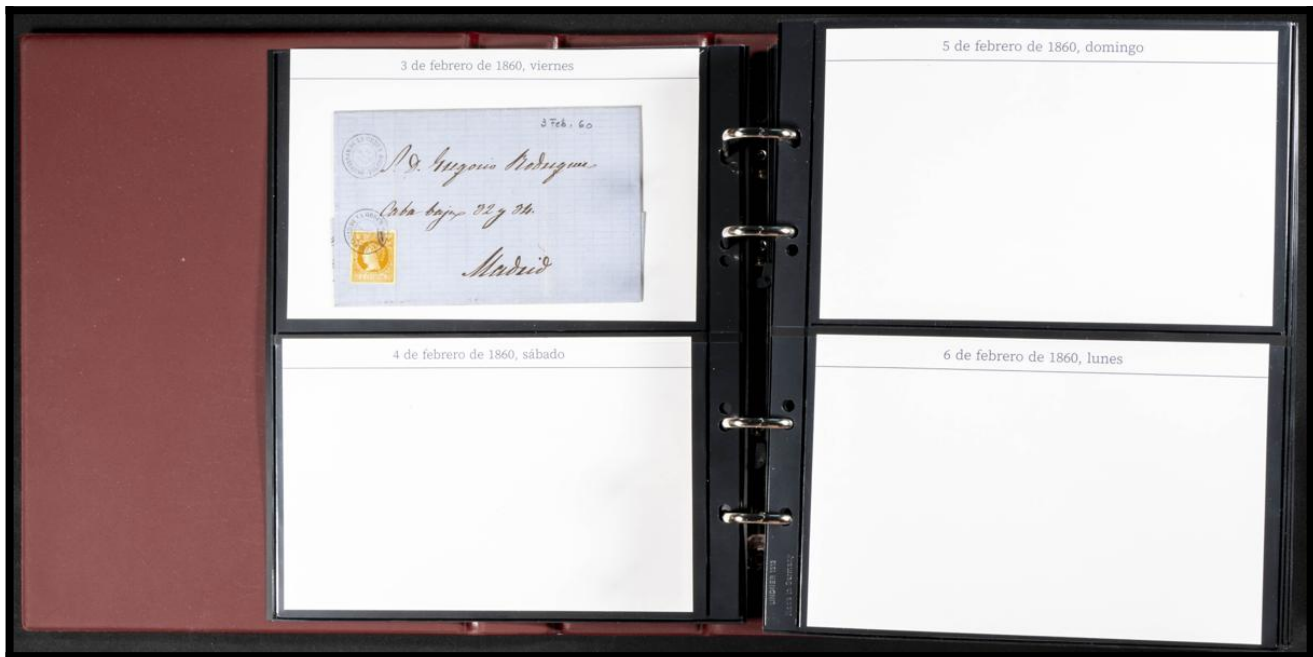 3 de febrero de 1860, viernes
3 Feb. 60
D. Gregorio Rodriguez
Caba baja 32 y 34.
Madrid
4 de febrero de 1860, sábado
5 de febrero de 1860, domingo
6 de febrero de 1860, lunes
LINDNER 1315